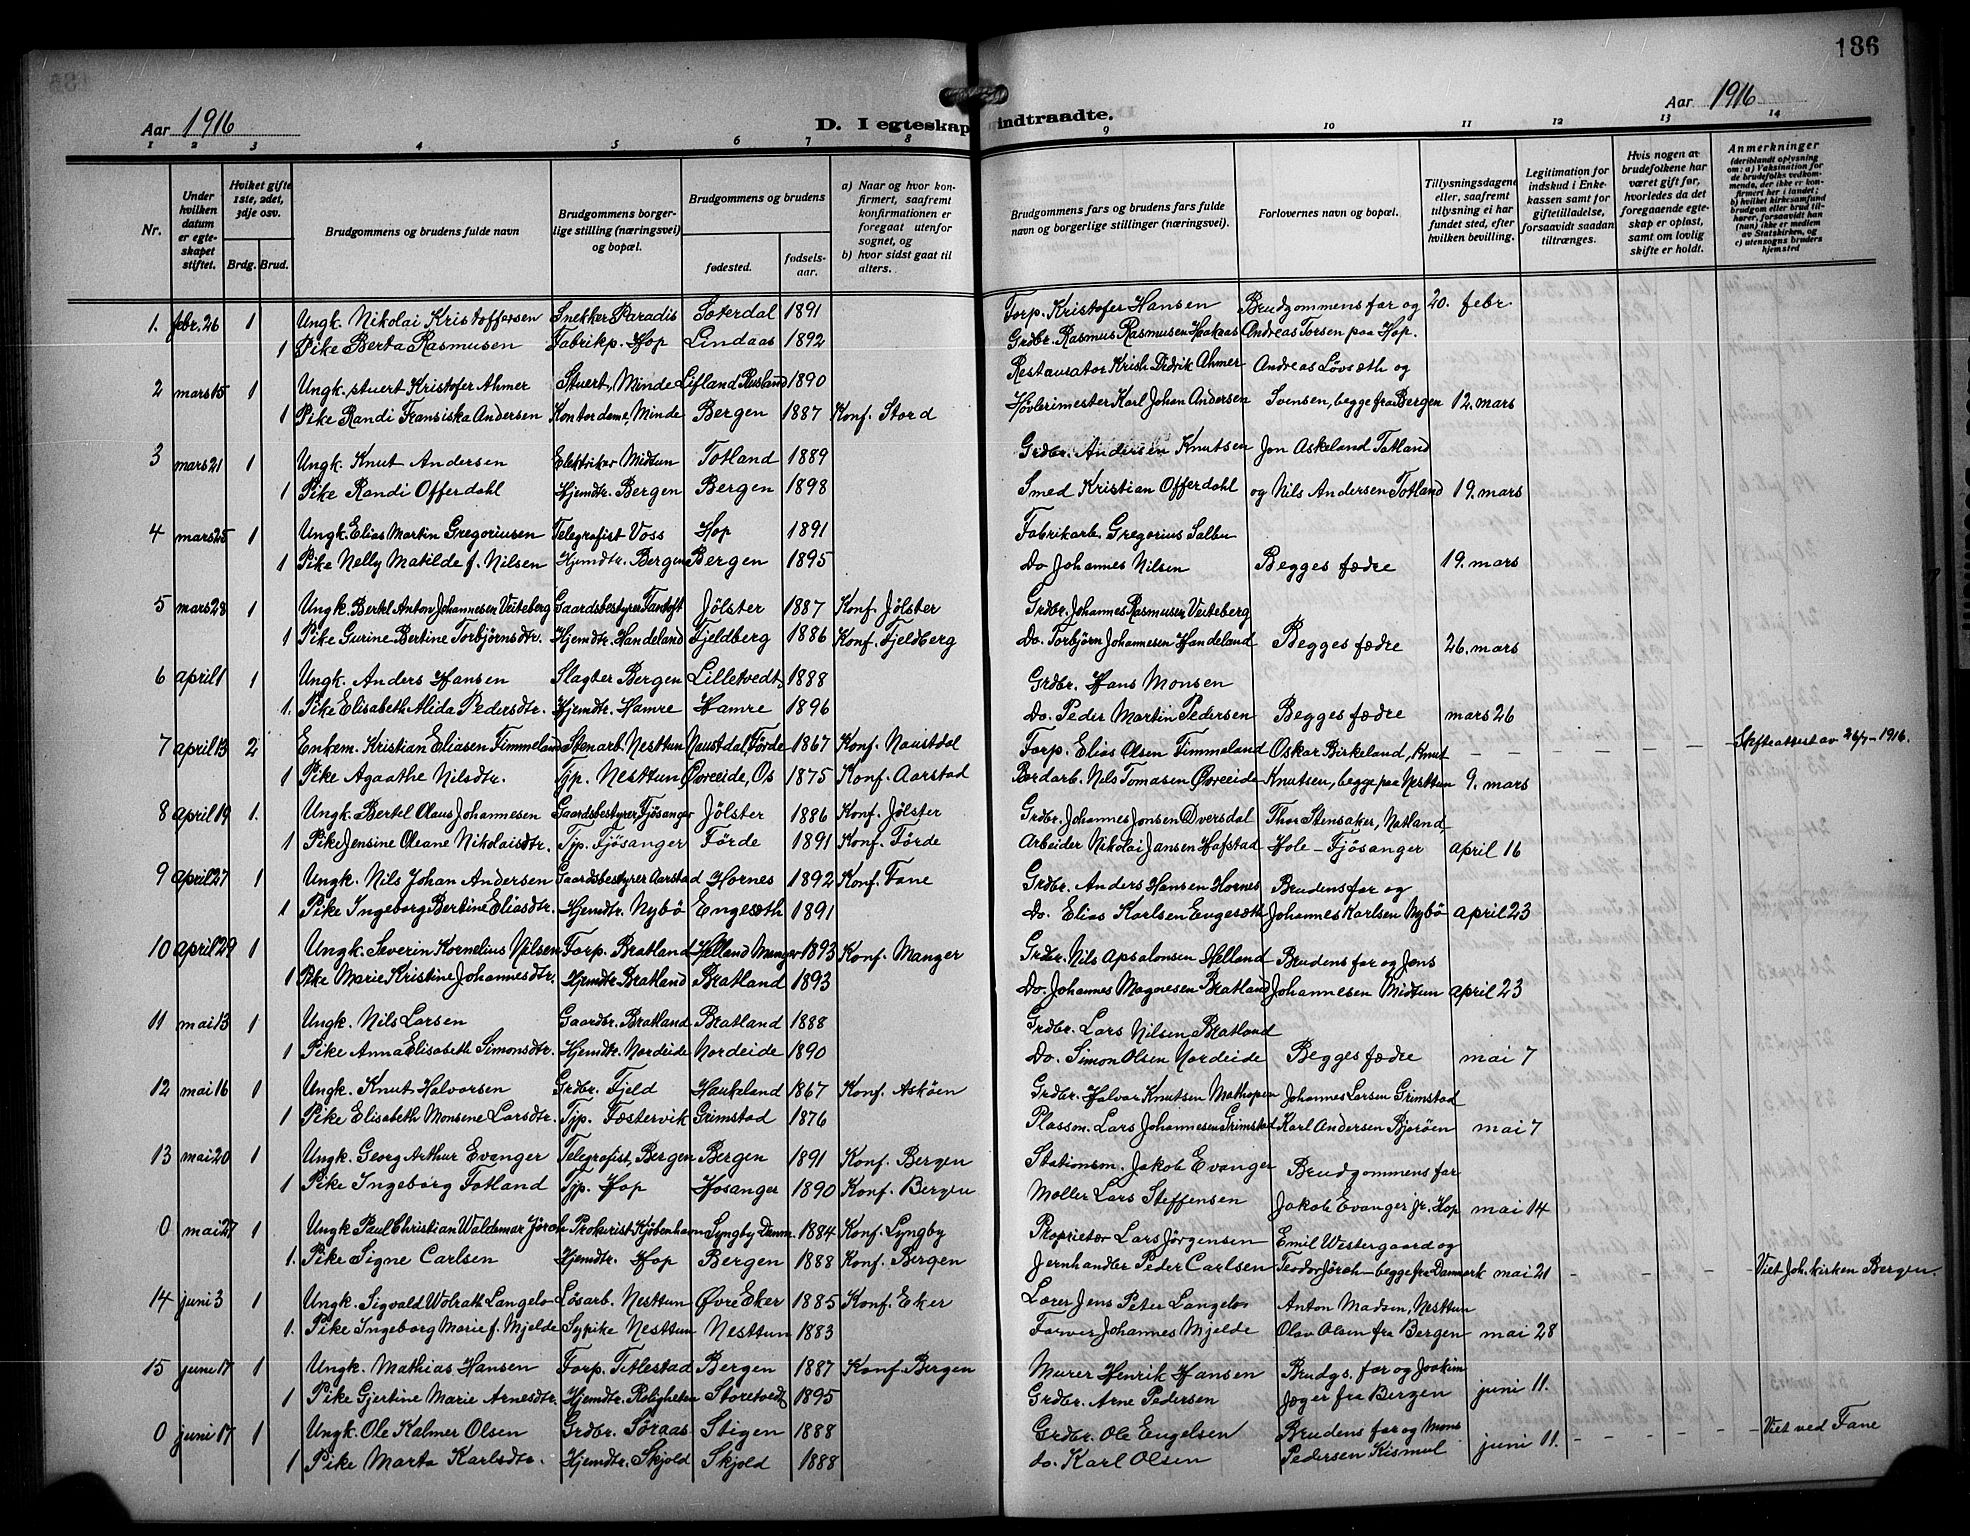 186
Aar 1916
Aar 1916
D. I egteskap indtraadte.
1 2 3 4 5 6 7 8 9 10 11 12 13 14
Nr.
Under hvilken datum er egteskapet stiftet.
Hvilket gifte 1ste, 2det, 3dje osv.
Brdg. Brud.
Brudgommens og brudens fulde navn
Brudgommens borgerlige stilling (næringsvei) og bopæl.
Brudgommens og brudens
fødested.
fødselsaar.
a) Naar og hvor konfirmert, saafremt konfirmationen er foregaat utenfor sognet, og
b) hvor sidst gaat til alters.
Brudgommens fars og brudens fars fulde navn og borgerlige stillinger (næringsvei)
Forlovernes navn og bopæl.
Tillysningsdagene eller, saafremt tillysning ei har fundet sted, efter hvilken bevilling.
Legitimation for indskud i Enkekassen samt for giftetilladelse, forsaavidt saadan tiltrænges.
Hvis nogen av brudefolkene har været gift før, hvorledes da det foregaaende egteskap er opløst, samt om lovlig skifte er holdt.
Anmerkninger
(deriblandt oplysning om: a) Vaksination for de brudefolks vedkommende, der ikke er konfirmert her i landet; b) hvilket kirkesamfund brudgom eller brud tilhører, forsaavidt han (hun) ikke er medlem av Statskirken, og c) utensogns bruders hjemsted
1. febr. 26 1 Ungk. Nikolai Kristoffersen Snekker Paradis Soterdal 1891 Forp. Kristofer Hansen Brudgommens far og 20. febr.
1 Pike Berta Rasmusen Fabrikp. Hop Lindaas 1892 Grdbr. Rasmus Rasmusen Haakaas Andreas Torsen paa Hop.
2 mars 15 1 Ungk. stuert Kristofer Ahmer Stuert, Minde Lifland Rusland 1890 Restaurator Krish Didrik Ahmer Andreas Lövseth og
1 Pike Randi Fransiska Andersen Kontordame, Minde Bergen 1887 Konf. Stord Høvlerimester Karl Johan Andersen Svensen, begge fra Bergen 12. mars
3 mars 21 1 Ungk. Knut Andersen Elektriker Midtun Totland 1889 Grdbr. Andersen Knutsen Jon Askeland Totland
1 Pike Randi Offerdahl Hjemdtr. Bergen Bergen 1898 Smed Kristian Offerdahl og Nils Andersen Totland 19. mars
4 mars 25 1 Ungk. Elias Martin Gregoriusen Telegrafist Voss Hop 1891 Fabrikarb. Gregorius Salbu
1 Pike Nelly Matilde f. Nilsen Hjemdtr. Bergen Bergen 1895 Do Johannes Nilsen Begges fædre 19. mars
5 mars 28 1 Ungk. Bertel Anton Johannesen Veiteberg Gaardsbestyrer Fantoft Jölster 1887 Konf. Jölster Grdbr. Johannes Rasmusen Veiteberg
1 Pike Gurine Bertine Torbjørnsdtr. Hjemdtr. Handeland Fjeldberg 1886 Konf. Fjeldberg Do. Torbjörn Johannesen Handeland Begges fædre 26. mars
6 april 1 1 Ungk. Anders Hansen Slagter Bergen Lilletvedt 1888 Grdbr. Hans Monsen
1. Pike Elisabeth Alida Pedersdtr. Hjemdtr. Hamre Hamre 1896 Do. Peder Martin Pedersen Begges fædre mars 26
7 april 13 2 Enkem. Kristian Eliasen Timmeland Stenarb. Nesttun Naustdal, Förde 1867 Konf. Naustdal Forp. Elias Olsen Timmeland Oskar Birkeland, Knut - - - - - - Skifteattest av 26/7-1916.
1 Pike Agaathe Nilsdtr. Tjp. Nesttun Øvreeide, Os 1875 Konf. Aarstad Bordarb. Nils Tomasen Øvreeide Knutsen, begge paa Nesttun 9. mars
8 april 19 1. Ungk. Bertel Olaus Johannesen Gaardsbestyrer, Fjösanger Jölster 1886 Konf. Jölster Grdbr. Johannes Jonsen Dversdal Thor Stensaker, Natland
1 Pike Jensine Oleane Nikolaisdtr. Tjp. Fjösanger Förde 1891 Konf. Förde Arbeider Nikolai Jansen Hafstad Hole - Fjösanger april 16
9 april 27 1 Ungk. Nils Johan Andersen Gaardsbestyrer Aarstad Hornes 1892 Konf. Fane Grdbr. Anders Hansen Hornes Brudens far og
1 Pike Ingeborg Bertine Eliasdtr. Hjemdtr. Nybö Engeseth 1891 Do. Elias Karlsen Engeseth Johannes Karlsen Nybö april 23
10 april 29 1 Ungk. Severin Kornelius Nilsen Forp. Bratland Helland Manger 1893 Konf. Manger Grdbr. Nils Apsalonsen Helland Brudens far og Jens
1 Pike Marie Kristine Johannesdtr. Hjemdtr. Bratland Bratland 1893 Do. Johannes Magnesen Bratland Johannesen Midtun april 23
11 mai 13 1 Ungk. Nils Larsen Gaardbr. Bratland Bratland 1888 Grdbr. Lars Nilsen Bratland
1 Pike Anna Elisabeth Simonsdtr. Hjemdtr. Nordeide Nordeide 1890 Do. Simon Olsen Nordeide Begges fædre mai 7
12 mai 16 1 Ungk. Knut Halvorsen Grdbr. Fjeld Haukeland 1867 Konf. Asköen Grdbr. Halvor Knutsen Mathopen Johannes Larsen Grimstad
1 Pike Elisabeth Monsene Larsdtr. Tjp. Fæstervik Grimstad 1876 Plassm. Lars Johannesen Grimstad Karl Andersen Bjoröen mai 7
13 mai 20 1 Ungk. Georg Arthur Evanger Telegrafist, Bergen Bergen 1891 Konf. Bergen Stationsm. Jakob Evanger Brudgommens far
1 Pike Ingeborg Fotland Tjp. Hop Hosanger 1890 Konf. Bergen Møller Lars Steffensen Jakob Evanger jr. Hop mai 14
0 mai 27 1 Ungk. Paul Christian Waldemar Jörch Prokurist Kjöbenhavn Lyngby Danm. 1884 Konf. Lyngby Proprietær Lars Jörgensen Emil Westergaard og
1. Pike Signe Carlsen Hjemdtr. Hop Bergen 1888 Konf. Bergen Jernhandler Peder Carlsen Teodor Jörch - begge fra Danmark mai 21 - - - - - Viet Joh. kirken Bergen.
14 juni 3 1 Ungk. Sigvald Wolrath Langelo Lösarb. Nesttun Øvre Eker 1885 Konf. Eker Lærer Jens Peter Langelo Anton Madsen, Nesttun
1. Pike Ingeborg Marie f. Mjelde Sypike Nesttun Nesttun 1883 Farver Johannes Mjelde Olav Olsen fra Bergen mai 28
15 june 17 1 Ungk. Mathias Hansen Forp. Titlestad Bergen 1887 Konf. Bergen Murer Henrik Hansen Brudgs. far og Joakim
1 Pike Gjertine Marie Arnesdtr. Hjemdtr. Roligheten Storetvedt 1895 Grdbr. Arne Pedersen Jæger fra Bergen juni 11.
0 juni 17 1 Ungk. Ole Kalmer Olsen Grdbr. Söraas Stigen 1888 Grdbr. Ole Engelsen Brudens far og Mons
1 Pike Marta Karlsdtr. Hjemdtr. Skjold Skjold 1888 do. Karl Olsen Pedersen Kismul juni 11. - - - - - Viet ved Fane